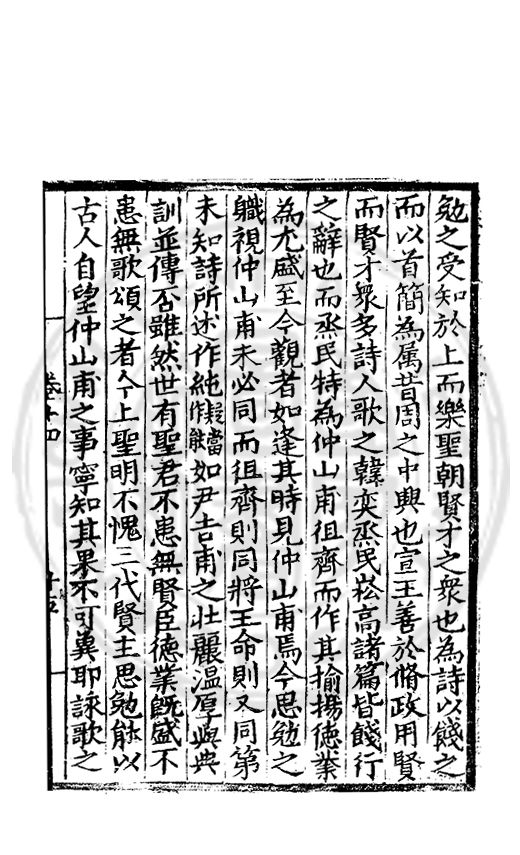 勉之受知於上而樂聖朝賢才之衆也為詩以餞之
而以首簡為属昔周之中興也宣王善於脩政用賢
而賢才衆多詩人歌之韓奕烝民崧高諸篇皆餞行
之辭也而烝民特為仲山甫徂齊而作其揄揚德業
為尤盛至今觀者如逢其時見仲山甫焉今思勉之
職視仲山甫未必同而徂齊則同將王命則又同第
未知詩所述作純擬當作能如尹吉甫之壯麗温厚與典
訓並傳否雖然世有聖君不患無賢臣德業既盛不
患無歌頌之者今上聖明不愧三代賢主思勉能以
古人自望仲山甫之事寧知其果不可冀耶詠歌之
卷十四